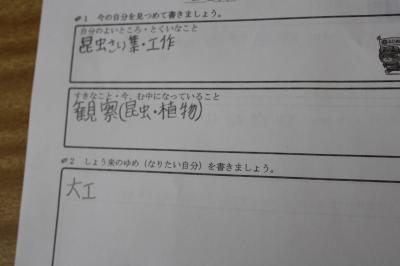 1 今の自分を見つめて書きましょう。
自分のよいところ・とくいなこと
昆虫さい集・工作
すきなこと・今、む中になっていること
観察(昆虫・植物)
2 しょう来のゆめ(なりたい自分)を書きましょう。
大工